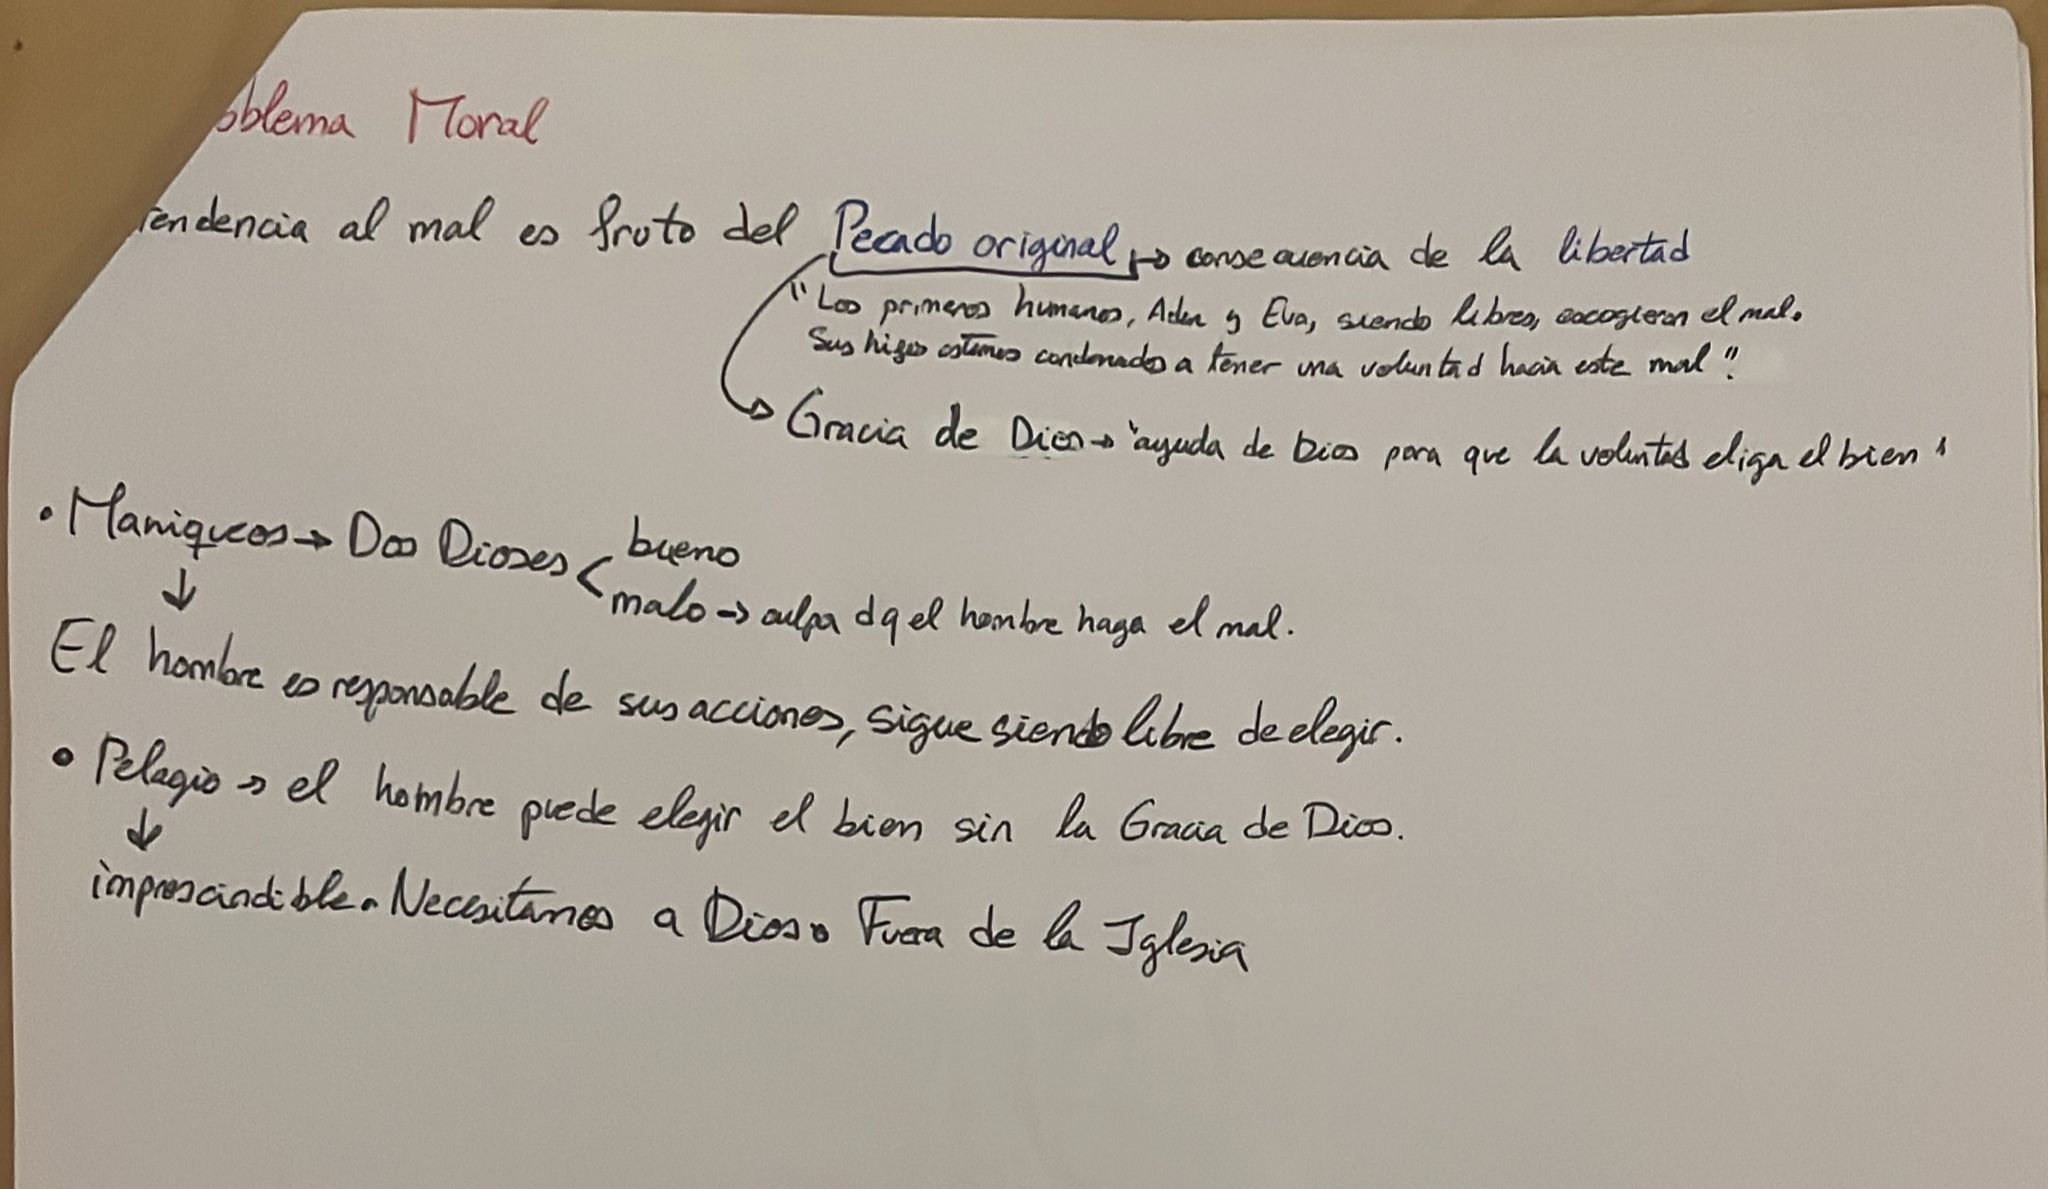 oblema Moral
tendencia al mal es fruto del Pecado original → consecuencia de la libertad
"Los primeros humanos, Adán y Eva, siendo libres, escogieron el mal.
Sus hijos estamos condenados a tener una voluntad hacia este mal".
→ Gracia de Dios → "ayuda de Dios para que la voluntad eliga el bien"
• Maniqueos → Dos Dioses < bueno
malo → culpa d q el hombre haga el mal.
↓
El hombre es responsable de sus acciones, sigue siendo libre de elegir.
• Pelagio → el hombre puede elegir el bien sin la Gracia de Dios.
↓
imprescindible. Necesitamos a Dios. Fuera de la Iglesia